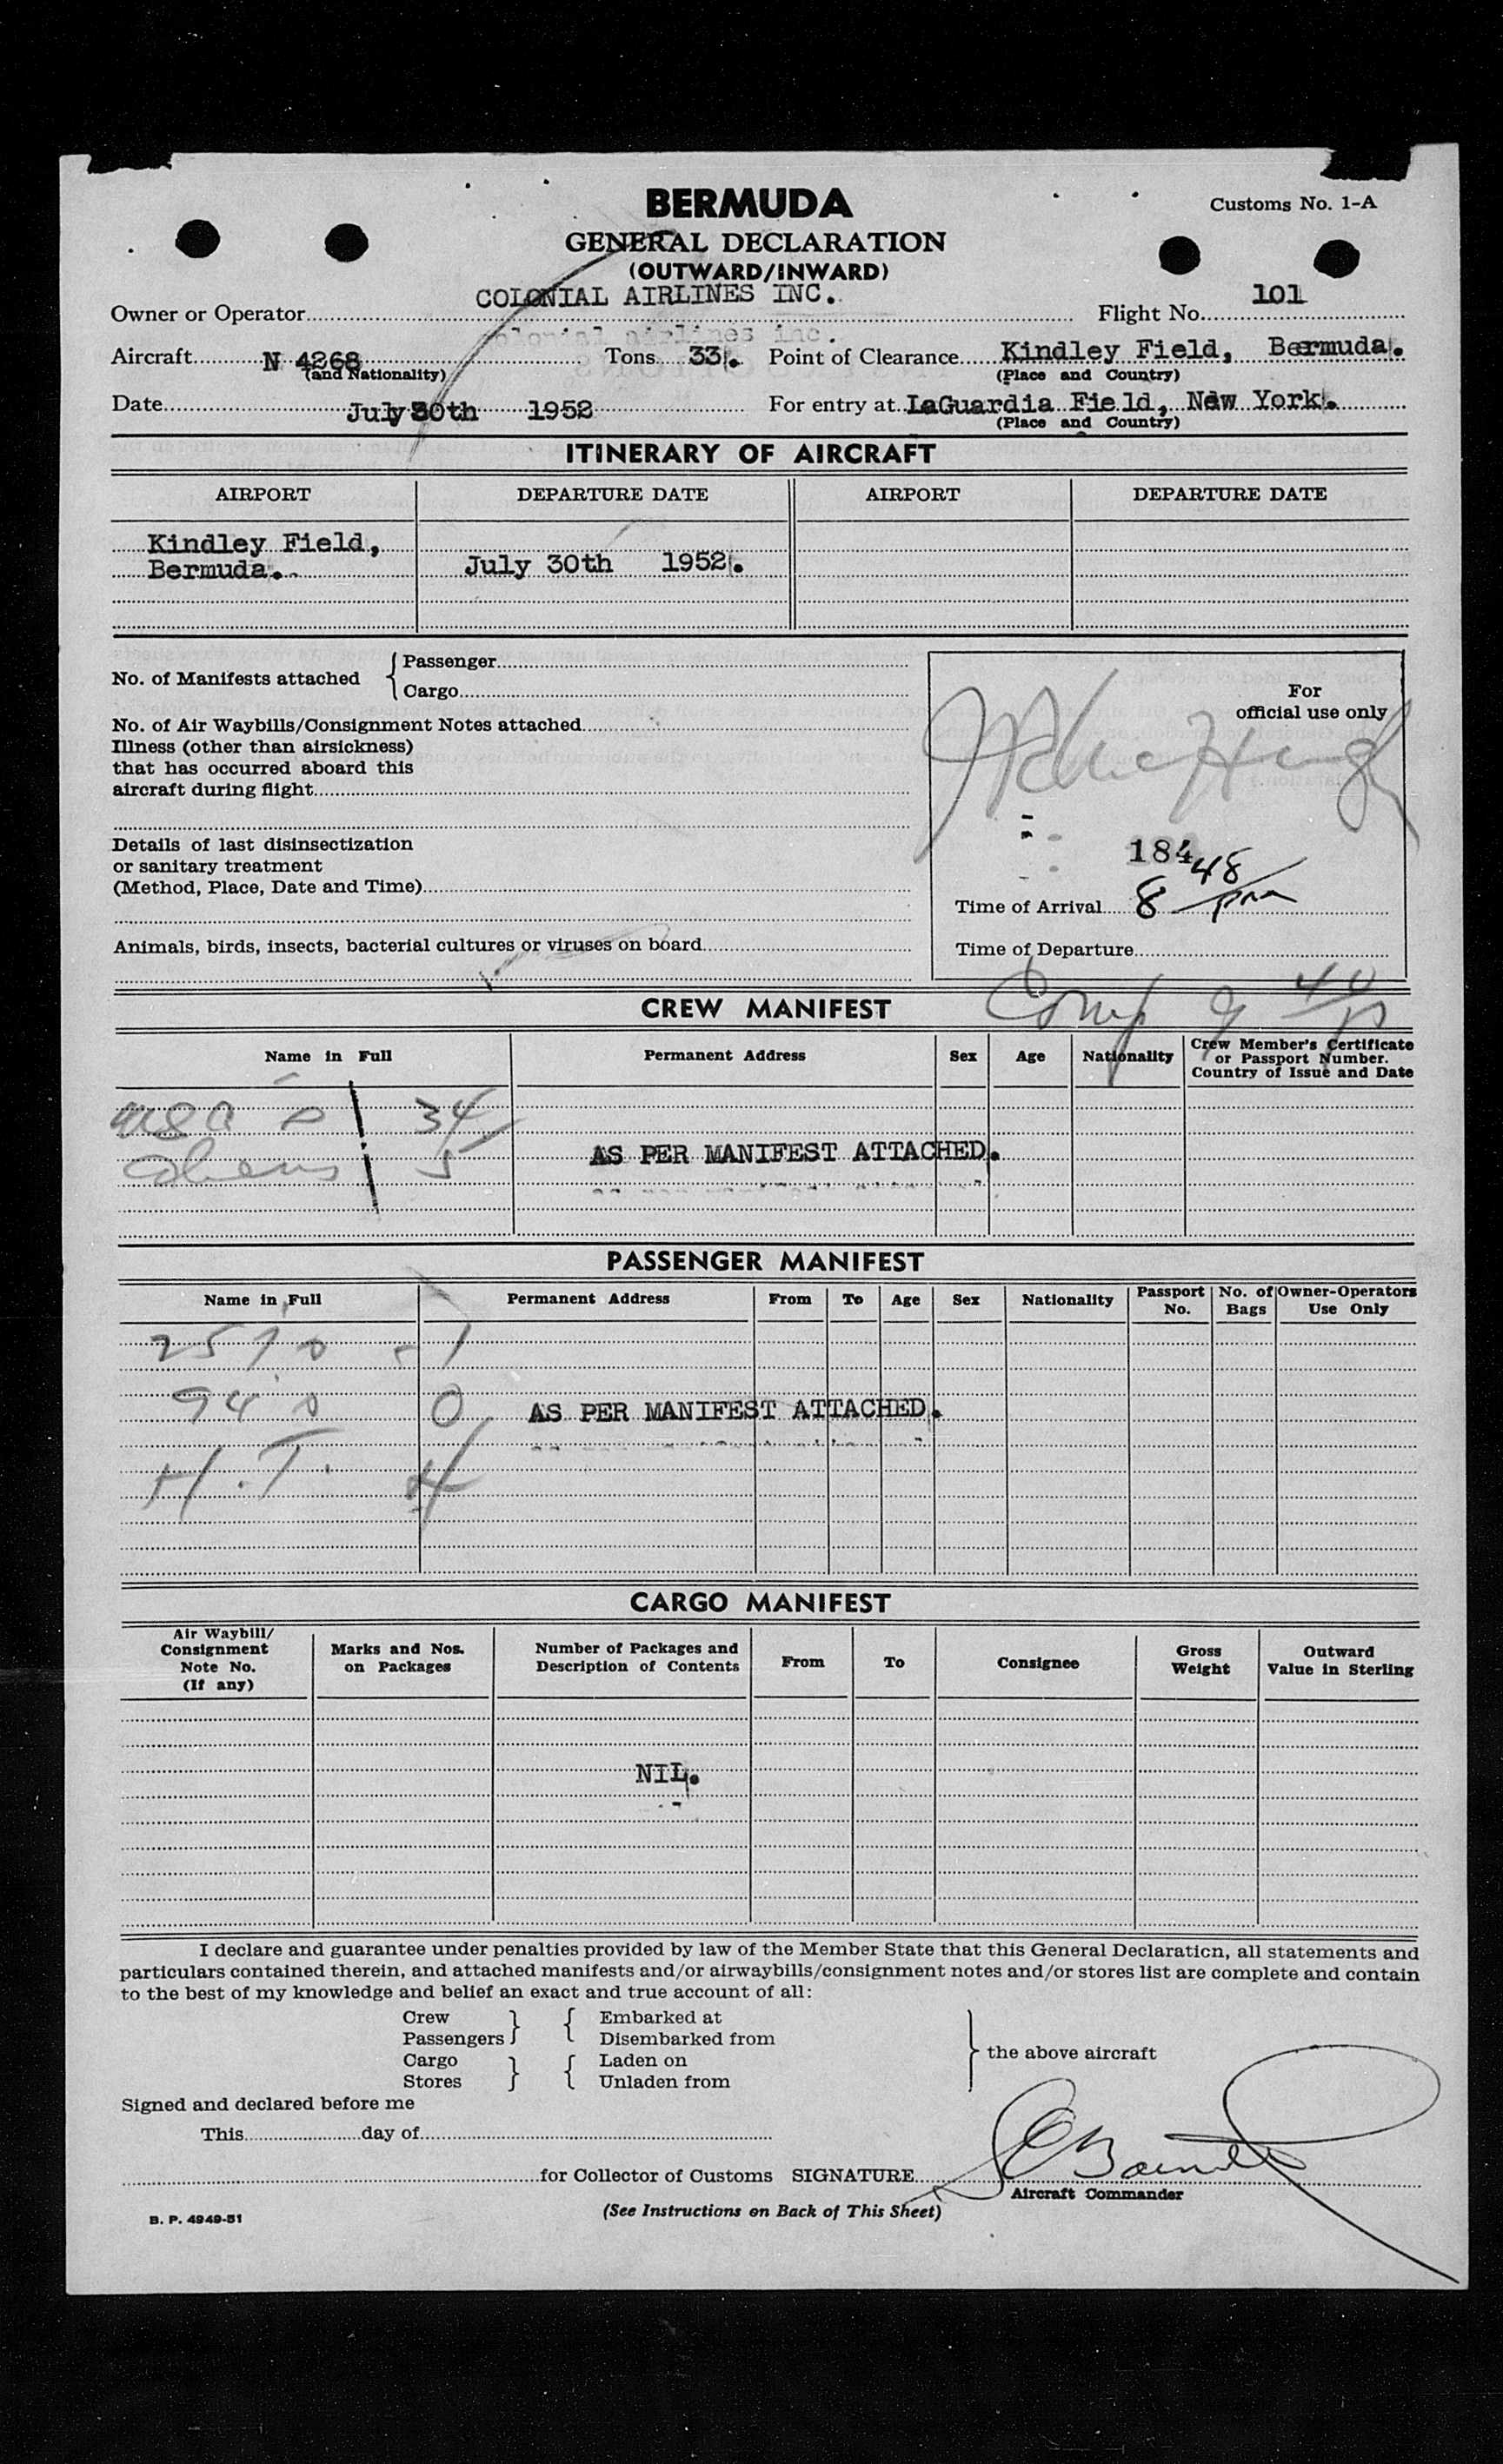 BERMUDA
Customs No. 1-A
GENERAL DECLARATION
(OUTWARD/INWARD)
COLONIAL AIRLINES INC.
Owner or Operator
Flight No. 101
Aircraft N 4268 Tons 33. Point of Clearance Kindley Field, Bermuda.
(and Nationality) (Place and Country)
Date July 30th 1952 For entry at LaGuardia Field, New York.
(Place and Country)
ITINERARY OF AIRCRAFT
AIRPORT DEPARTURE DATE AIRPORT DEPARTURE DATE
Kindley Field,
Bermuda. July 30th 1952.
No. of Manifests attached { Passenger
Cargo
For
official use only
No. of Air Waybills/Consignment Notes attached
Illness (other than airsickness)
that has occurred aboard this
aircraft during flight
Details of last disinsectization
or sanitary treatment
(Method, Place, Date and Time)
184
Time of Arrival 8 48 pm
Animals, birds, insects, bacterial cultures or viruses on board
Time of Departure
Comp 9 40 p
CREW MANIFEST
Name in Full Permanent Address Sex Age Nationality Crew Member's Certificate
or Passport Number.
Country of Issue and Date
34
aliens 5
AS PER MANIFEST ATTACHED.
PASSENGER MANIFEST
Name in Full Permanent Address From To Age Sex Nationality Passport No. No. of Bags Owner-Operators Use Only
1
94 0
AS PER MANIFEST ATTACHED.
H.T. 4
CARGO MANIFEST
Air Waybill/
Consignment
Note No.
(If any)
Marks and Nos.
on Packages
Number of Packages and
Description of Contents
From
To
Consignee
Gross
Weight
Outward
Value in Sterling
NIL.
I declare and guarantee under penalties provided by law of the Member State that this General Declaration, all statements and
particulars contained therein, and attached manifests and/or airwaybills/consignment notes and/or stores list are complete and contain
to the best of my knowledge and belief an exact and true account of all:
Crew } { Embarked at
Passengers } { Disembarked from
Cargo } { Laden on
Stores } { Unladen from
} the above aircraft
Signed and declared before me
This day of
for Collector of Customs SIGNATURE
Aircraft Commander
(See Instructions on Back of This Sheet)
B. P. 4949-51